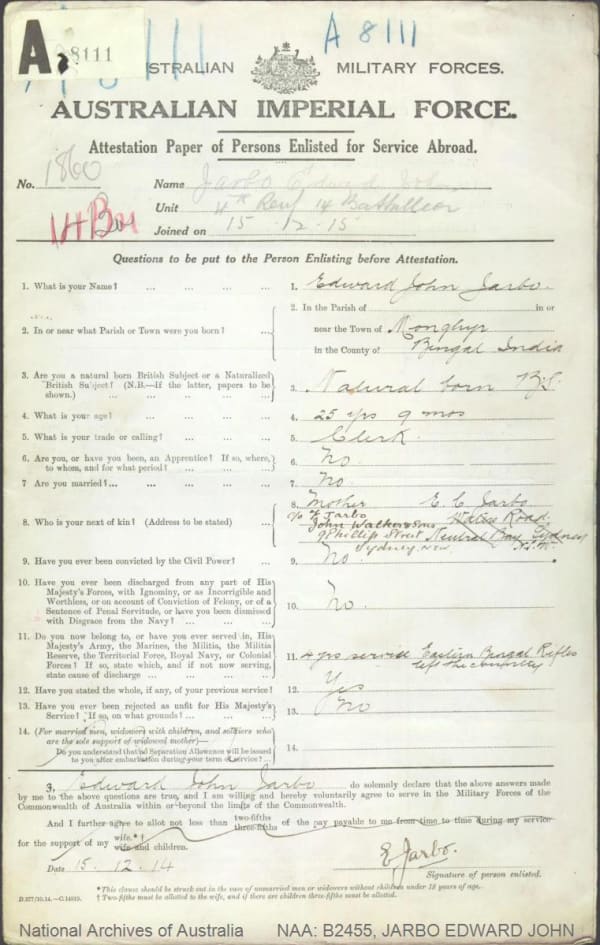 A 8111
A 8111
AUSTRALIAN MILITARY FORCES.
AUSTRALIAN IMPERIAL FORCE.
Attestation Paper of Persons Enlisted for Service Abroad.
No. 1860 Name Jarbo Edward John
Unit 4th Reinf 14 Battallion
Joined on 15-12-15
Questions to be put to the Person Enlisting before Attestation.
1. What is your Name? ... ... ... ... 1. Edward John Jarbo.
2. In or near what Parish or Town were you born? ... 2. In the Parish of in or
near the Town of Monghyr
in the County of Bengal India
3. Are you a natural born British Subject or a Naturalized British Subject? (N.B.—If the latter, papers to be shown.) ... 3. Natural born B.S.
4. What is your age? ... ... ... ... 4. 25 yrs 9 mos
5. What is your trade or calling? ... ... ... 5. Clerk
6. Are you, or have you been, an Apprentice? If so, where, to whom, and for what period? ... ... ... 6. No
7 Are you married? ... ... ... ... ... 7. No
8. Who is your next of kin? (Address to be stated) ... 8. Mother E. C. Jarbo
c/o F Jarbo Road
John Walker & Sons
9 Phillip Street Neutral Bay Sydney
Sydney. NSW N.S.W.
9. Have you ever been convicted by the Civil Power? ... 9. No
10. Have you ever been discharged from any part of His Majesty's Forces, with Ignominy, or as Incorrigible and Worthless, or on account of Conviction of Felony, or of a Sentence of Penal Servitude, or have you been dismissed with Disgrace from the Navy? ... ... ... 10. No.
11. Do you now belong to, or have you ever served in, His Majesty's Army, the Marines, the Militia, the Militia Reserve, the Territorial Force, Royal Navy, or Colonial Forces? If so, state which, and if not now serving, state cause of discharge ... ... ... ... 11. 4 yrs service Eastern Bengal Rifles
left the country
12. Have you stated the whole, if any, of your previous service? 12. Yes
13. Have you ever been rejected as unfit for His Majesty's Service? If so, on what grounds? ... ... ... 13. No
14. (For married men, widowers with children, and soldiers who are the sole support of widowed mother)—
Do you understand that no Separation Allowance will be issued to you after embarkation during your term of service? ... 14.
I, Edward John Jarbo do solemnly declare that the above answers made
by me to the above questions are true, and I am willing and hereby voluntarily agree to serve in the Military Forces of the
Commonwealth of Australia within or beyond the limits of the Commonwealth.
And I further agree to allot not less than two-fifths three-fifths of the pay payable to me from time to time during my service
for the support of my wife.*† wife and children.
Date 15.12.14 E Jarbo.
Signature of person enlisted.
* This clause should be struck out in the case of unmarried men or widowers without children under 18 years of age.
† Two-fifths must be allotted to the wife, and if there are children three-fifths must be allotted.
National Archives of Australia NAA: B2455, JARBO EDWARD JOHN